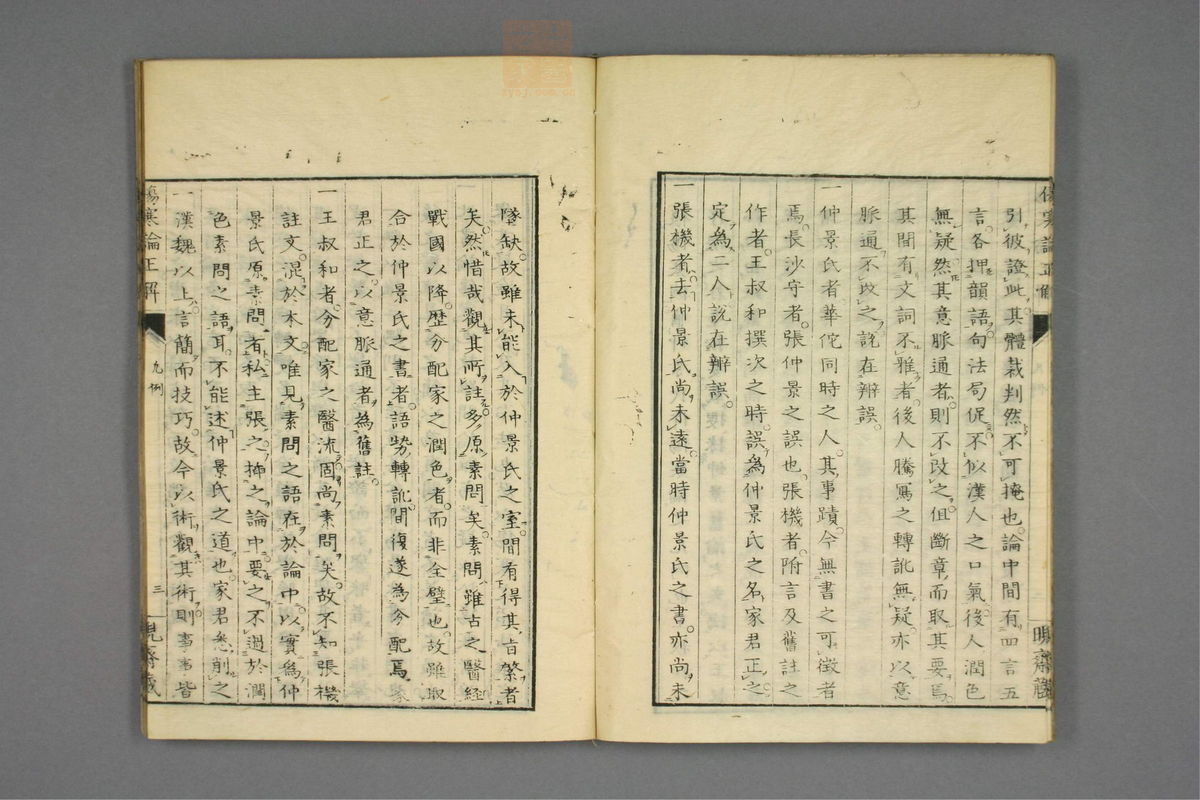 傷寒論正解
引彼證此其體裁判然不可掩也論中間有四言五
言各押韻語句法局促不似漢人之口氣後人潤色
無疑然其意脈通者則不改之但斷章而取其要焉
其間有文詞不雅者後人騰寫之轉訛無疑亦以意
脈通不改之說在辨誤
一仲景氏者華佗同時之人其事蹟今無書之可徵者
焉長沙守者張仲景之誤也張機者附言及舊註之
作者王叔和撰次之時誤為仲景氏之名家君正之
定為二人說在辨誤
一張機者去仲景氏尚未遠當時仲景氏之書亦尚未
墜缺故雖未能入於仲景氏之室間有得其旨繁者
矣然惜哉觀其所註多原素問矣素問雖古之醫経
戰國以降歷分配家之潤色者而非全璧也故雖取
合於仲景氏之書者語勢轉訛間復遂為分配焉家
君正之以意脈通者為舊註
一王叔和者分配家之醫流固尚素問矣故不知張機
註文混於本文唯見素問之語在於論中以實為仲
景氏原素問者私主張之揷之論中要之不過於潤
色素問之語耳不能述仲景氏之道也家君悉削之
一漢魏以上言簡而技巧故今以術觀其術則事事皆
傷寒論正解
凡例
三
晛齋藏